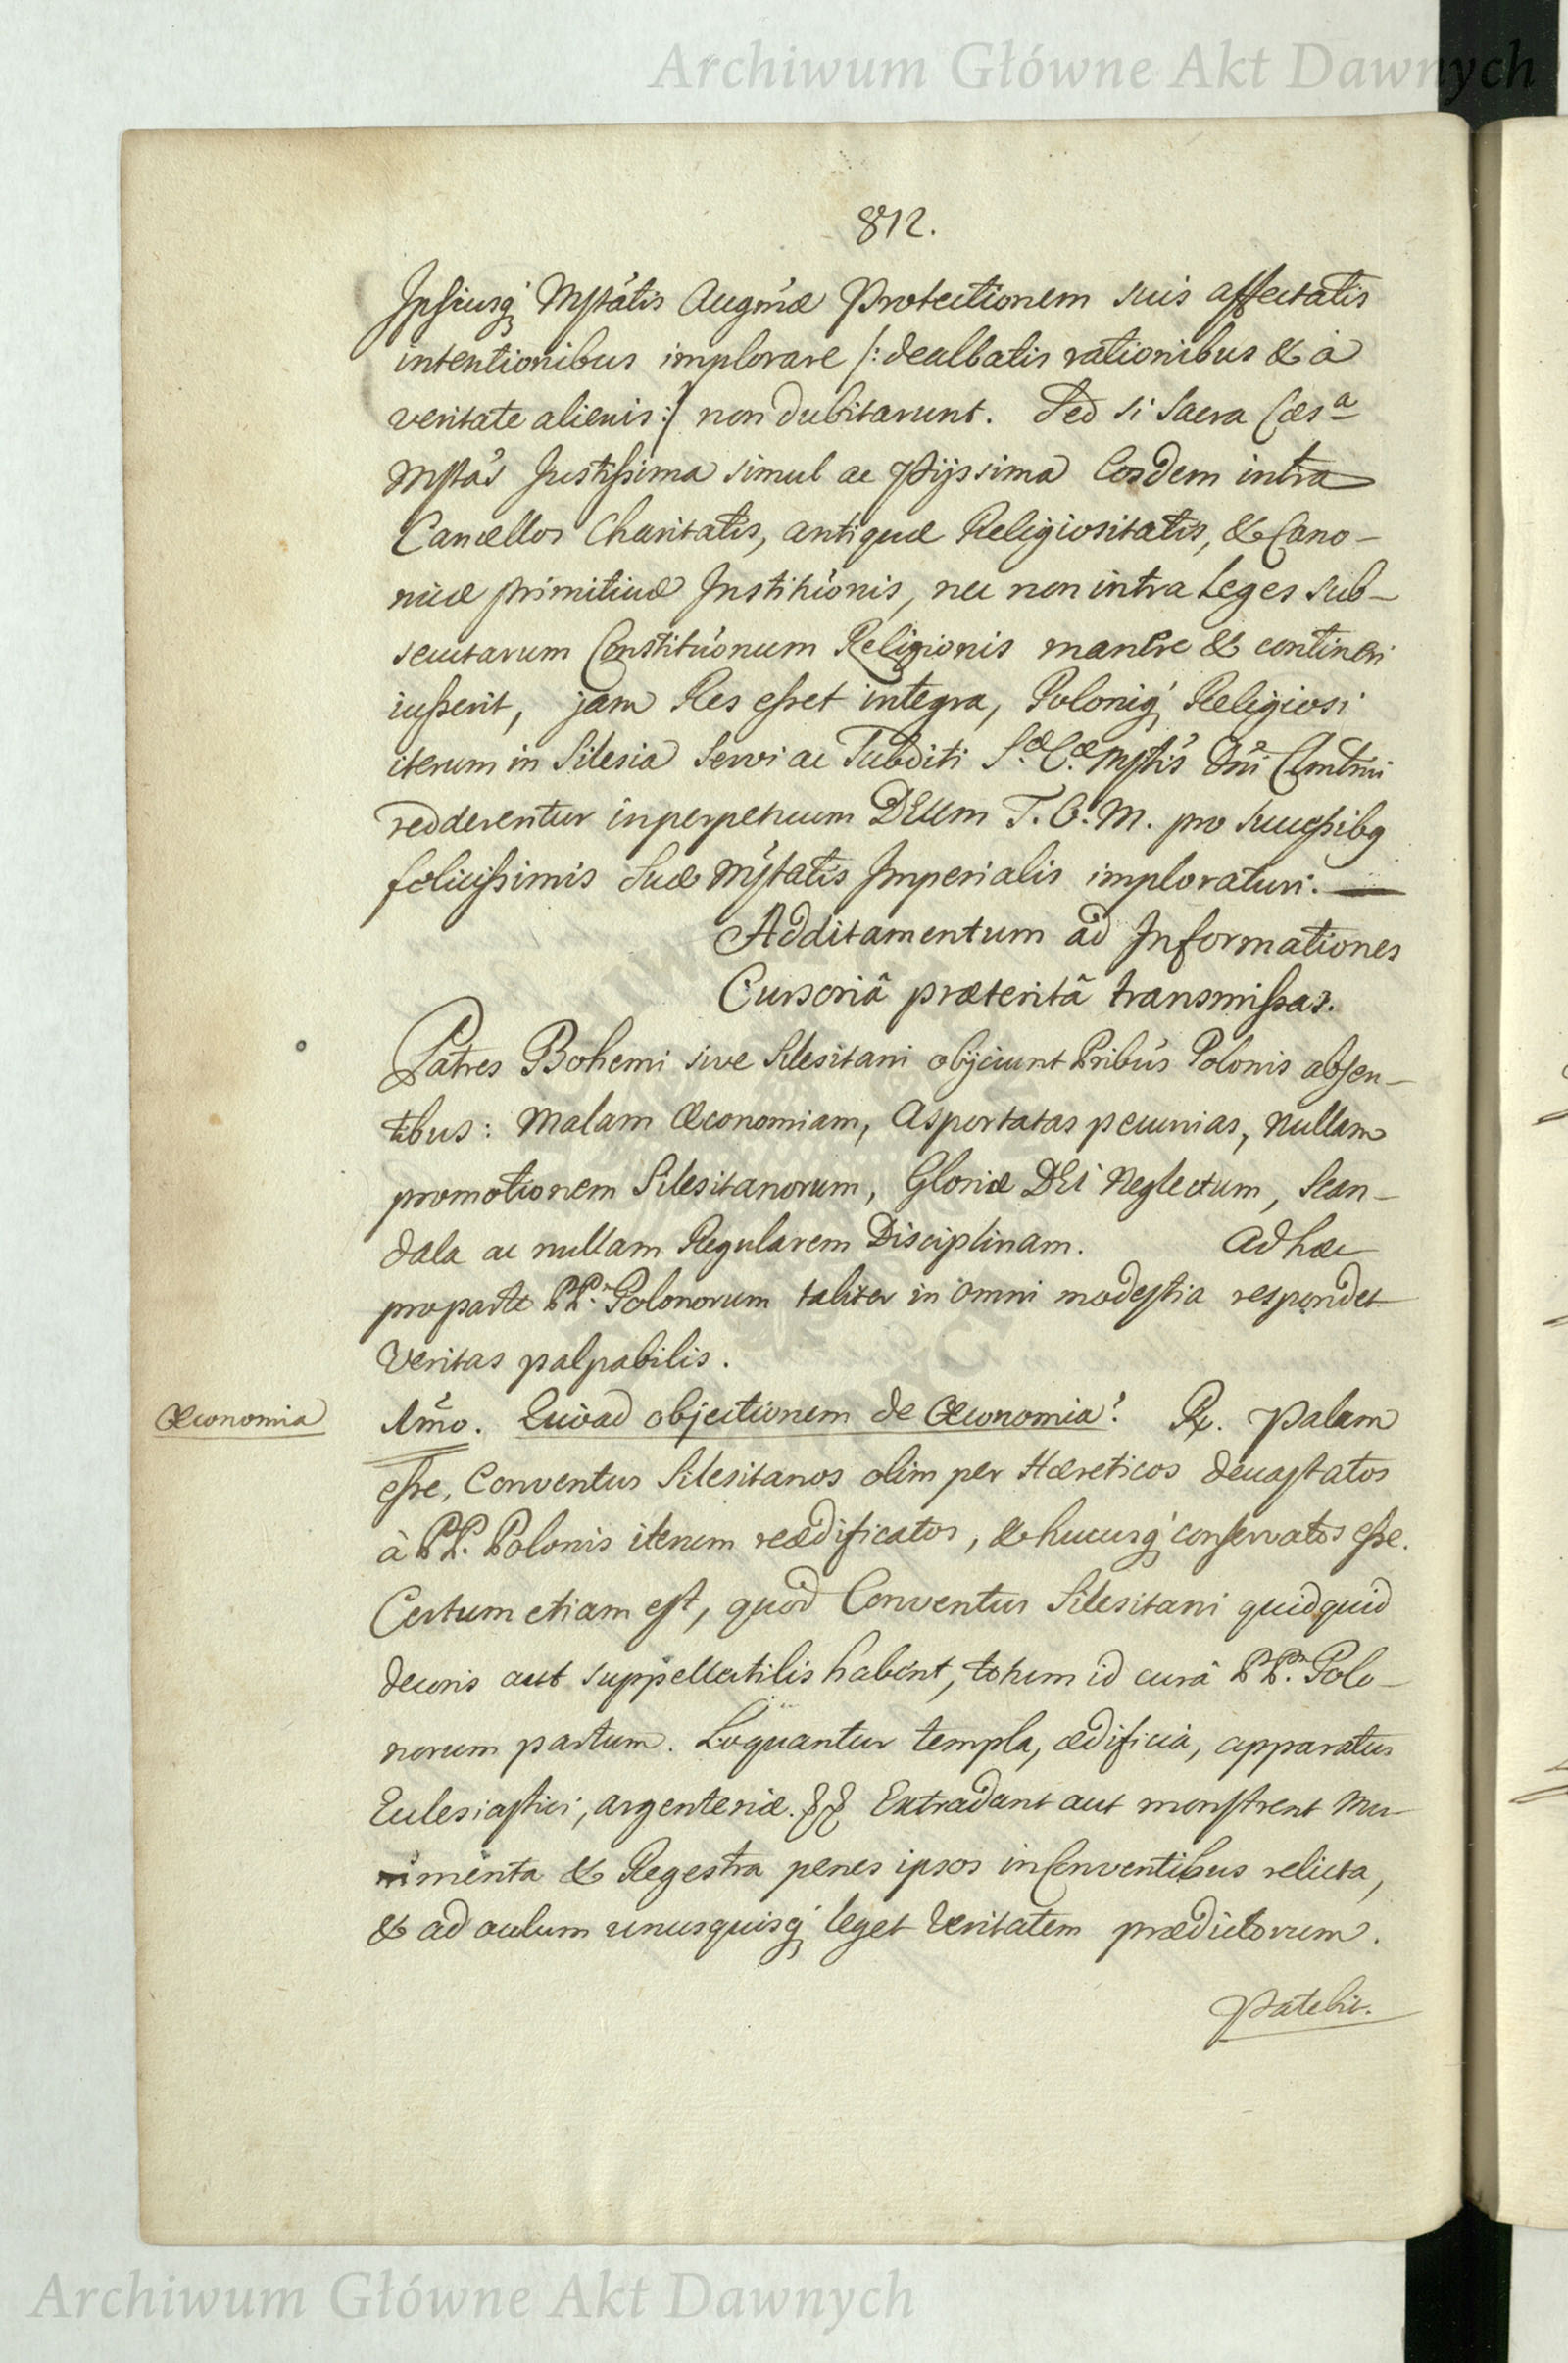 Archiwum Główne Akt Dawnych
812.
Ipsiusq́ Mstátis Augm̃æ Protectionem suis affectatis
intentionibus implorare /: dealbatis rationibus & à
veritate alienis :/ non dubitarunt. Sed si Sacra Cæsª
Mstás Justissima simul ac Pijssima Eosdem intra
Cancellos Charitatis, antiquæ Religiositatis, & Cano-
nicæ primitiuæ Institúonis, nec non intra Leges sub-
secutarum Constitúonum Religionis manere & contineri
iusserit, jam Res esset integra, Poloniq́ Religiosi
iterum in Silesia Servi ac Subditi S.æ C.æ Mstís Dñi Clmtmi
redderentur in perpetuum DEUm T. O. M. pro successibq
felicissimis Suæ Mstátis Imperialis imploraturi.
Additamentum ad Informationes
Cursoriâ præteritâ transmissas.
Patres Bohemi sive Silesitani objiciunt Pribús Polonis absen-
tibus: Malam Œconomiam, Asportatas pecunias, Nullam
promotionem Silesitanorum, Gloriæ DEI Neglectum, Scan-
dala ac nullam Regularem Disciplinam. Ad hæc
pro parte PP. Polonorum taliter in omni modestia respondet
Veritas palpabilis.
Œconomia
1mo. Quoad objectionem de Œconomia? Rx. Palam
esse, Conventus Silesitanos olim per Hæreticos deuastatos
à PP. Polonis iterum reædificatos, & hucusq́ conservatos esse.
Certum etiam est, quòd Conventus Silesitani quidquid
decoris aut suppellectilis habent, totum id curâ PP. Polo-
norum partum. Loquantur templa, ædificia, apparatus
Ecclesiastici, argenteriæ. && Extradant aut monstrent Mu-
nimenta & Regestra penes ipsos in Conventibus relicta,
& ad oculum unusquisq́ leget Veritatem prædictorum.
Patebit.
Archiwum Główne Akt Dawnych